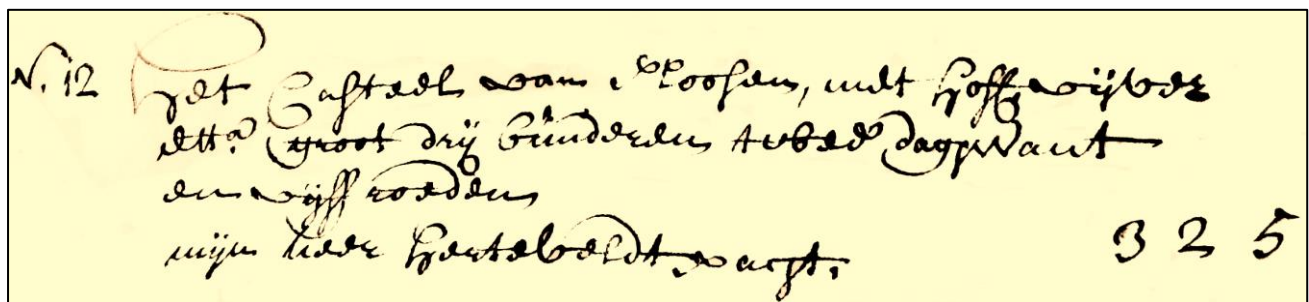 N. 12 Het Casteel van met hoff, vijver
etta. groot drij bunderen twee dagwant
en vijff roeden
mijn heer Herteveldt pacht. 3 2 5